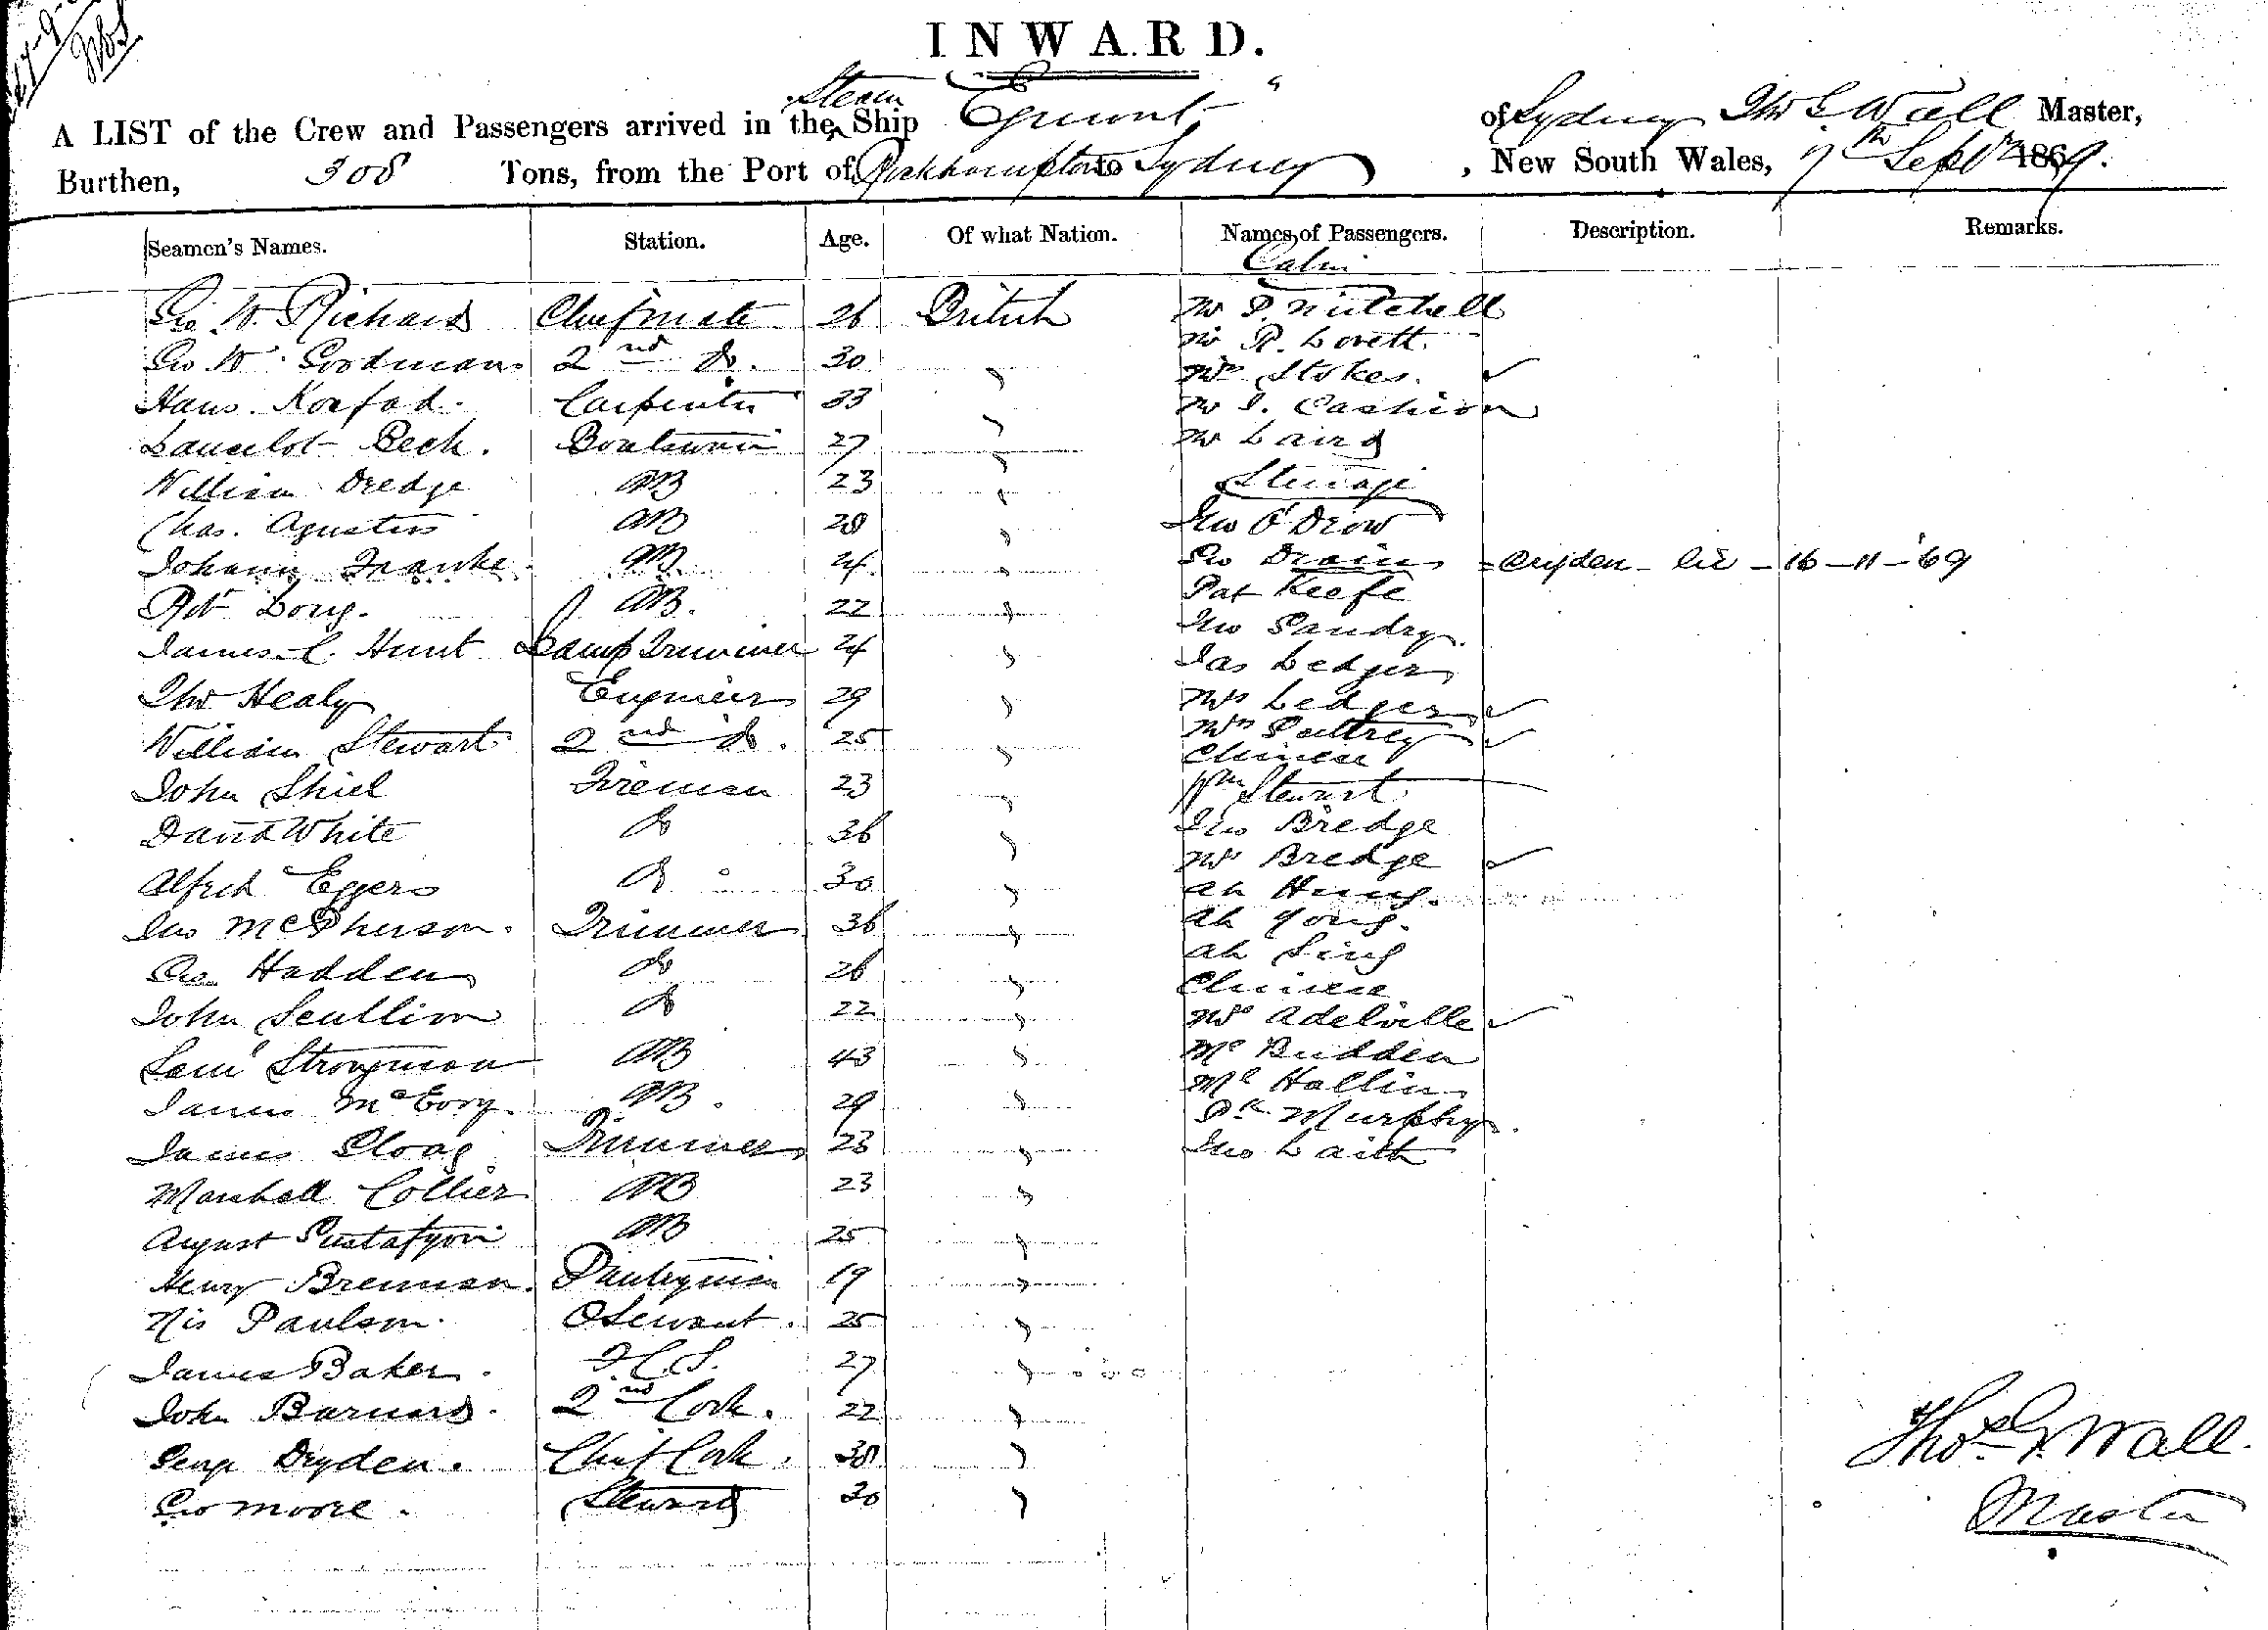 INWARD.
A LIST of the Crew and Passengers arrived in the Steam Ship Egmont " of Sydney Thos G Wall Master,
Burthen, 308 Tons, from the Port of Rockhampton to Sydney, New South Wales, 7th Sept 1869.
Seamen's Names. Station. Age. Of what Nation. Names, of Passengers. Description. Remarks.
Cabin
Geo W. Richards Chief mate 26 British Mr P. Mitchell
Mr R. Lovett.
Geo W. Goodman 2nd Do. 30 " Mrs Stokes. ✓
Hans. Carpenter 33 " Mr J. Cashion
Lancelot Beck. Boatswain 27 " Mr Laird
William Dredge AB 23 " Steerage
Chas. Agustin AB 28 " Jno O'Drow
Johann Franke AB 24 " Geo =Dryden - lie - 16-11-69
Robt Long. AB. 22 " Pat Keefe
James C. Hunt Lamp Trimmer 24 " Jno
Jas Ledger
Thos Healy Engineer 29 " Mrs Ledger ✓
William Stewart 2nd Do. 25 " Mrs ✓
Chinese
John Shiel Fireman 23 " Wm Stewart
David White Do 36 " Jno Bredge
Mrs Bredge ✓
Alfred Eggers Do 30 " Ah Hung.
Jno McPherson. Trimmer 36 " Ah Yong.
Geo Hadden Do 26 " Ah Sing
Chinese
John Scullion Do 22 " Mrs Adelville ✓
Saml Strongman AB 43 " Mc Budden
James McEvoy. AB. 29 " Mc Hallin
Pk Murphy.
James Cloag Trimmer 23 " Jno Laith
Marshall Collier AB 23 "
August Gustafson AB 25 "
Henry Brennan. Pantryman 19 "
Nis Paulson. 25 "
James Baker. F.C.S. 27 "
John Barnard. 2nd Cook. 22 "
George Dryden. Chief Cook. 38 "
Geo Moore. Steward 30 "
Thos G Wall.
Master